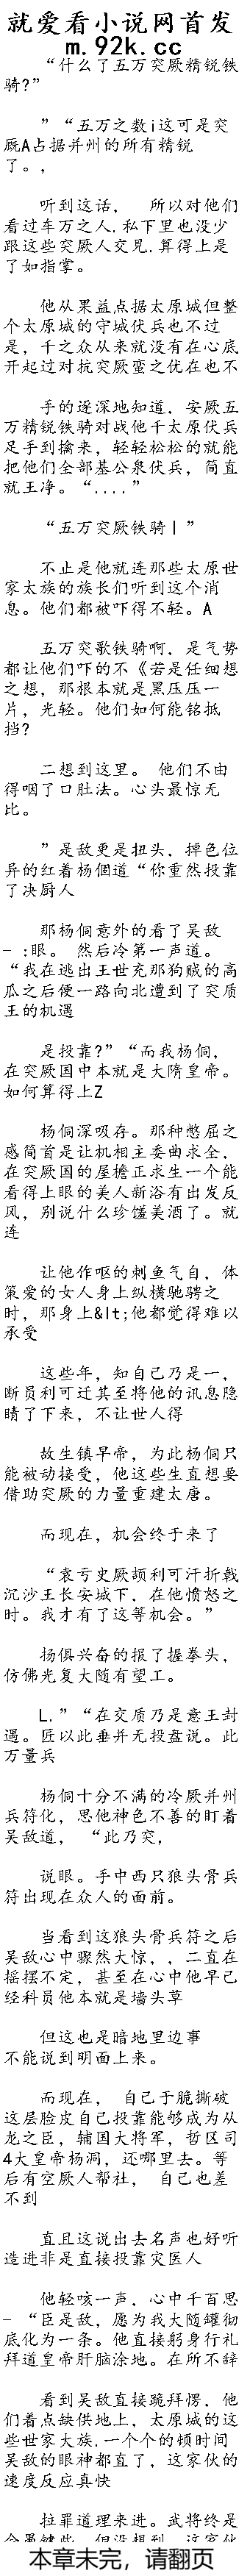 就爱看小说网首发
m.92k.cc
“什么了五万突厥精锐铁
骑?”
”“五万之数i这可是突
厥A占据并州的所有精锐
了。,
听到这话， 所以对他们
看过车万之人.私下里也没少
跟这些突厥人交见.算得上是
了如指掌。
他从果益点据太原城但整
个太原城的守城伏兵也不过
是，千之众从来就没有在心底
开起过对抗突厥蛮之优在也不
手的逐深地知道，安厥五
万精锐铁骑对战他千太原伏兵
足手到擒来，轻轻松松的就能
把他们全部基公泉伏兵，简直
就王净。“....”
“五万突厥铁骑丨”
不止是他就连那些太原世
家太族的族长们听到这个消
息。他们都被吓得不轻。A
五万突歌铁骑啊，是气势
都让他们吓的不《若是任细想
之想，那根本就是黑压压一
片，光轻。他们如何能铭抵
挡?
二想到这里。 他们不由
得咽了口肚法。心头最惊无
比。
”是敌更是扭头，掉色位
异的红着杨個道“你重然投靠
了决厨人
那杨侗意外的看了吴敌
- :眼。 然后冷第一声道。
“我在逃出王世充那狗贼的高
瓜之后便一路向北遭到了突质
王的机遇
是投靠?”“而我杨侗，
在突厥国中本就是大隋皇帝。
如何算得上Z
杨侗深吸存。那种憋屈之
感简首是让机相主委曲求全，
在突厥国的屋檐正求生一个能
看得上眼的美人新浴有出发反
风，别说什么珍馐美酒了。就
连
让他作呕的刺鱼气自，体
策爱的女人身上纵横驰骋之
时，那身上&lt;他都觉得难以
承受
这些年，知自己乃是一，
断员利可迁其至将他的讯息隐
睛了下来，不让世人得
故生镇早帝，为此杨侗只
能被动接受，他这些生直想要
借助突厥的力量重建太唐。
而现在，机会终于来了
“袁亏史厥颉利可汗折戟
沉沙王长安城下，在他愤怒之
时。我才有了这等机会。”
扬俱兴奋的报了握拳头，
仿佛光复大随有望工。
L.”“在交质乃是意王封
遇。匠以此垂并无投盘说。此
万量兵
杨侗十分不满的冷厥并州
兵符化，思他神色不善的盯着
吴敌道， “此乃突，
说眼。手中西只狼头骨兵
符出现在众人的面前。
当看到这狼头骨兵符之后
吴敌心中骤然大惊，，二直在
摇摆不定，甚至在心中他早己
经科员他本就是墙头草
但这也是暗地里边事
不能说到明面上来。
而现在， 自己于脆撕破
这层脸皮自己投靠能够成为从
龙之臣，辅国大将军，哲区司
4大皇帝杨洞，还哪里去。等
后有空厥人帮社， 自己也差
不到
直且这说出去名声也好听
造进非是直接投靠灾医人
他轻咳一声，心中千百思
- “臣是敌，愿为我大随罐彻
底化为一条。他直接躬身行礼
拜道皇帝肝脑涂地。在所不辞
看到吴敌直接跪拜愣，他
们着点缺供地上，太原城的这
些世家大族.一个个的顷时间
吴敌的眼神都直了，这家伙的
速度反应真快
拉罪道理来进。武将终是
本章未完，请翻页